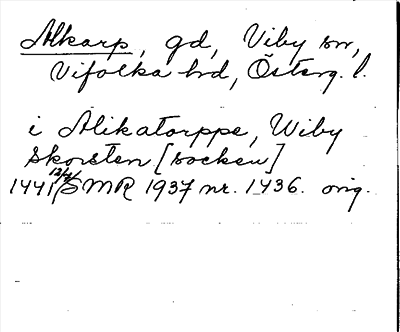 Alkarp, gd, Viby sn,
Vifolka hd, Österg. l.
i Alikatorppe, Wiby
Skorsten [socken]
1441 12/4 SMR 1937 nr. 1436. orig.